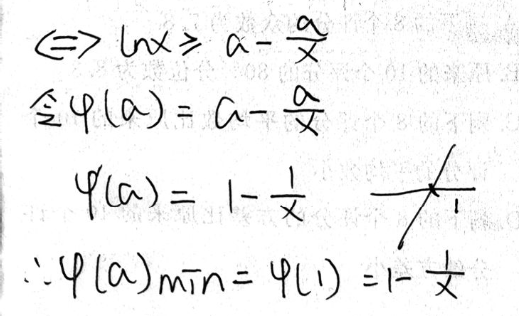 <=> lnx ≥ a - a/x
令φ(a) = a - a/x
φ'(a) = 1 - 1/x
1
∴φ(a)min = φ(1) = 1 - 1/x